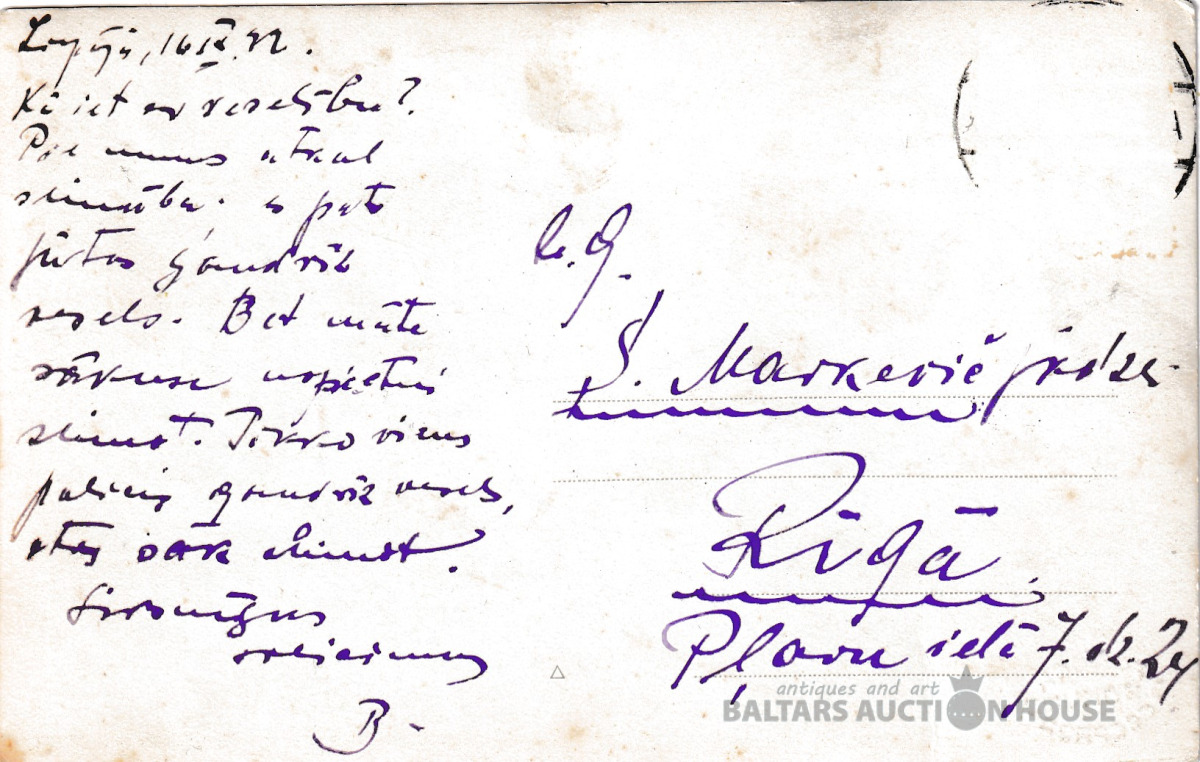 Liepājā, 16 IX.
Kā iet ar veselību?
Pie mums atkal
slimība. es pats
jūtos gandrīz
vesels. Bet māte
sākuse nopietni
slimot. Tikko viens
paliek gandrīz vesels,
otrs sāk slimot.
Sirsnīgus
sveicienus
B.
L. g.
Markevič jkdze
Rīgā.
Pļavu ielā 7. dz. 24
antiques and art
BALTARS AUCTION HOUSE